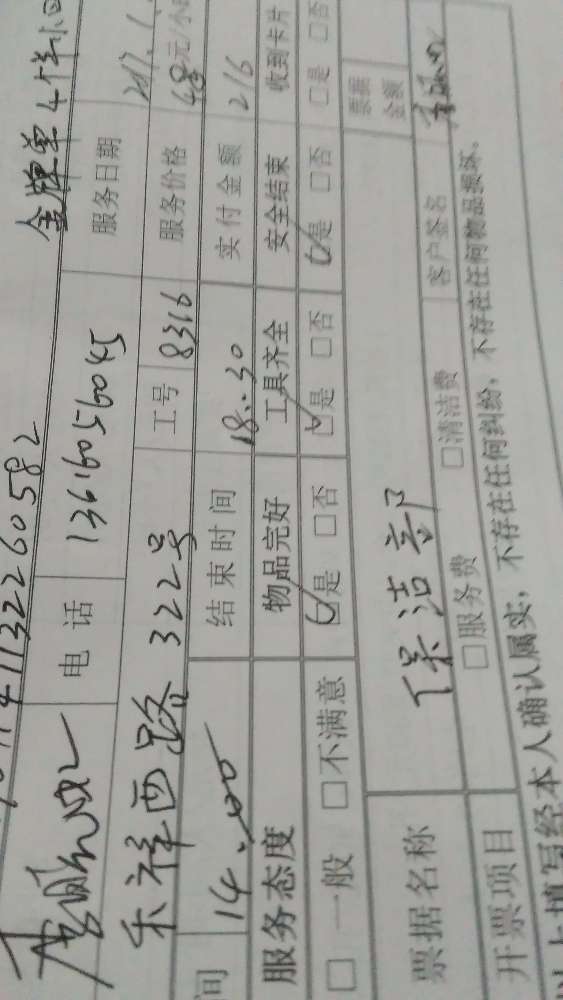 411322605 82 金牌单4样小
电话 13616056045 服务日期 2017.1.
乐祥西路322号 工号 8316 服务价格 48元/小
间 14:00 结束时间 18:30 实付金额 216
服务态度 物品完好 工具齐全 安全结束 收到卡片
□一般 □不满意 □是 □否 □是 □否 □是 □否 □是 □否
票据名称 保洁部 票据金额
开票项目 □服务费 □清洁费 客户签名
以上填写经本人确认属实，不存在任何纠纷，不存在任何物品损坏。